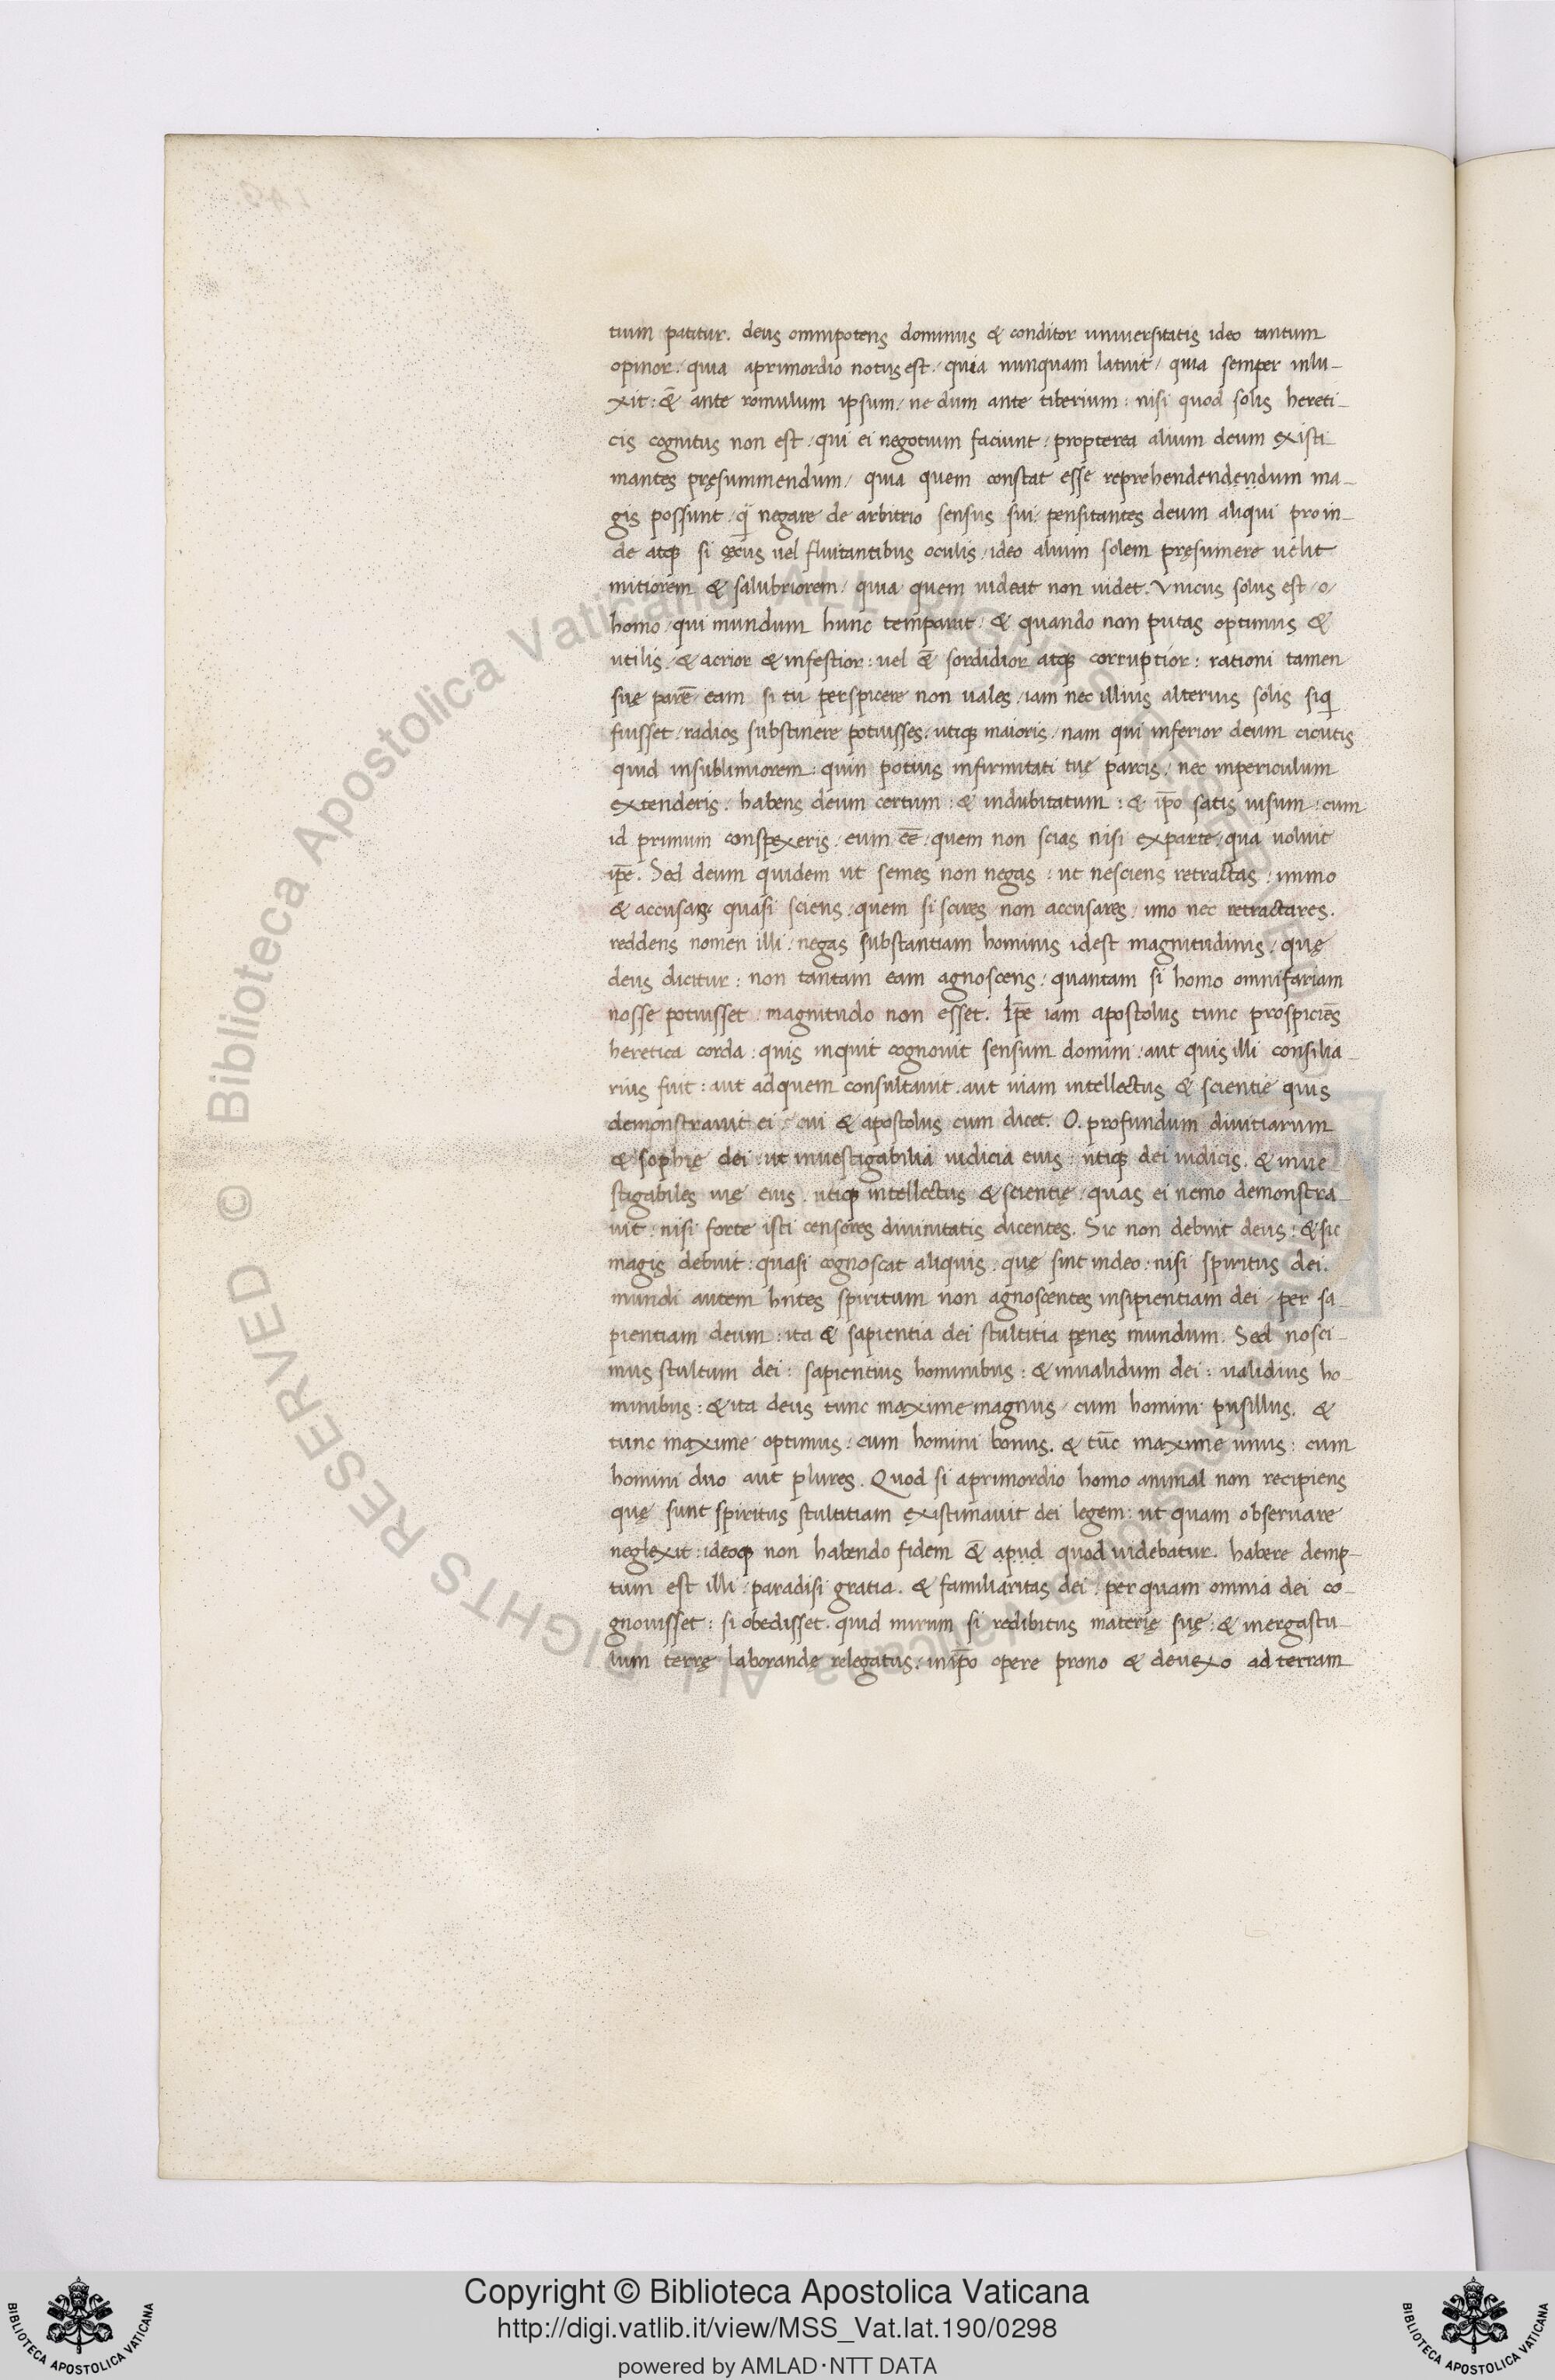 tium patitur. deus omnipotens dominus & conditor uniuersitatis ideo tantum
opinor / quia aprimordio notus est / quia nunquam latuit / quia semper inlu-
xit : & ante romulum ipsum / ne dum ante tiberium : nisi quod solis hereti-
cis cognitus non est / qui ei negotium faciunt / propterea alium deum existi
mantes pręsummendum / quia quem constat esse reprehendendendum ma-
gis possunt / negare de arbitrio sensus sui / pensitantes deum aliqui proin-
de atqꝫ si uel fluitantibus oculis / ideo alium solem pręsumere uelit
mitiorem & salubriorem / quia quem uideat non uidet. Vnicus solus est / o /
homo / qui mundum hunc temparat / & quando non putas optimus &
utilis / & acrior & infestior : uel ēt sordidior atqꝫ corruptior : rationi tamen
suę parē / eam si tu perspicere non uales / iam nec illius alterius solis siqͥ
fuisset / radios substinere potuisses / utiqꝫ maioris / nam qui inferior deum cicutis
quid insublimiorem : quin potius infirmitati tuę parcis / nec inpericulum
extenderis / habens deum certum : & indubitatum : & ip̄o satis uisum : cum
id primum conspexeris / eum ēe / quem non scias nisi exparte / qua uoluit
ip̄e. Sed deum quidem ut semes non negas : ut nesciens retractas / immo
& accusas quasi sciens / quem si scires non accusares / imo nec retractares.
reddens nomen illi / negas substantiam hominis idest magnitudinis / quę
deus dicitur : non tantam eam agnoscens / quantam si homo omnifariam
nosse potuisset / magnitudo non esset. Ip̄e iam apostolus tunc prospiciēs
heretica corda : quis inquit cognouit sensum domini / aut quis illi consilia-
rius fuit : aut adquem consultauit . aut uiam intellectus & scientię quis
demonstrauit ei : cui & apostolus cum dicet. O. profundum diuitiarum
& sophię dei : ut inuestigabilia iudicia eius : utiqꝫ dei iudicis . & inue
stigabiles uię eius . utiqꝫ intellectus & scientię / quas ei nemo demonstra-
uit : nisi forte isti censores diuinitatis dicentes. Sic non debuit deus : & sic
magis debuit : quasi cognoscat aliquis : quę sint indeo : nisi spiritus dei.
mundi autem hn̄tes spiritum non agnoscentes insipientiam dei / per sa-
pientiam deum : ita & sapientia dei stultitia pęnes mundum. Sed nosci-
mus stultum dei : sapientius hominibus : & inualidum dei : ualidius ho-
minibus : & ita deus tunc maxime magnus / cum homini pusillus. &
tunc maxime optimus : cum homini bonus . & tūc maxime unus : cum
homini duo aut plures. Quod si aprimordio homo animal non recipiens
quę sunt spiritus stultitiam existimauit dei legem : ut quam obseruare
neglexit : ideoqꝫ non habendo fidem ēt apud quod uidebatur . habere demp-
tum est illi / paradisi gratia . & familiaritas dei / per quam omnia dei co-
gnouisset : si obedisset . quid mirum si redibitus materię suę : & inergastu-
lum terrę laborandę relegatus / inip̄o opere prono & deuexo ad terram
© Biblioteca Apostolica Vaticana ALL RIGHTS RESERVED
© Biblioteca Apostolica Vaticana ALL RIGHTS RESERVED
Copyright © Biblioteca Apostolica Vaticana
http://digi.vatlib.it/view/MSS_Vat.lat.190/0298
powered by AMLAD·NTT DATA
BIBLIOTECA APOSTOLICA VATICANA
BIBLIOTECA APOSTOLICA VATICANA